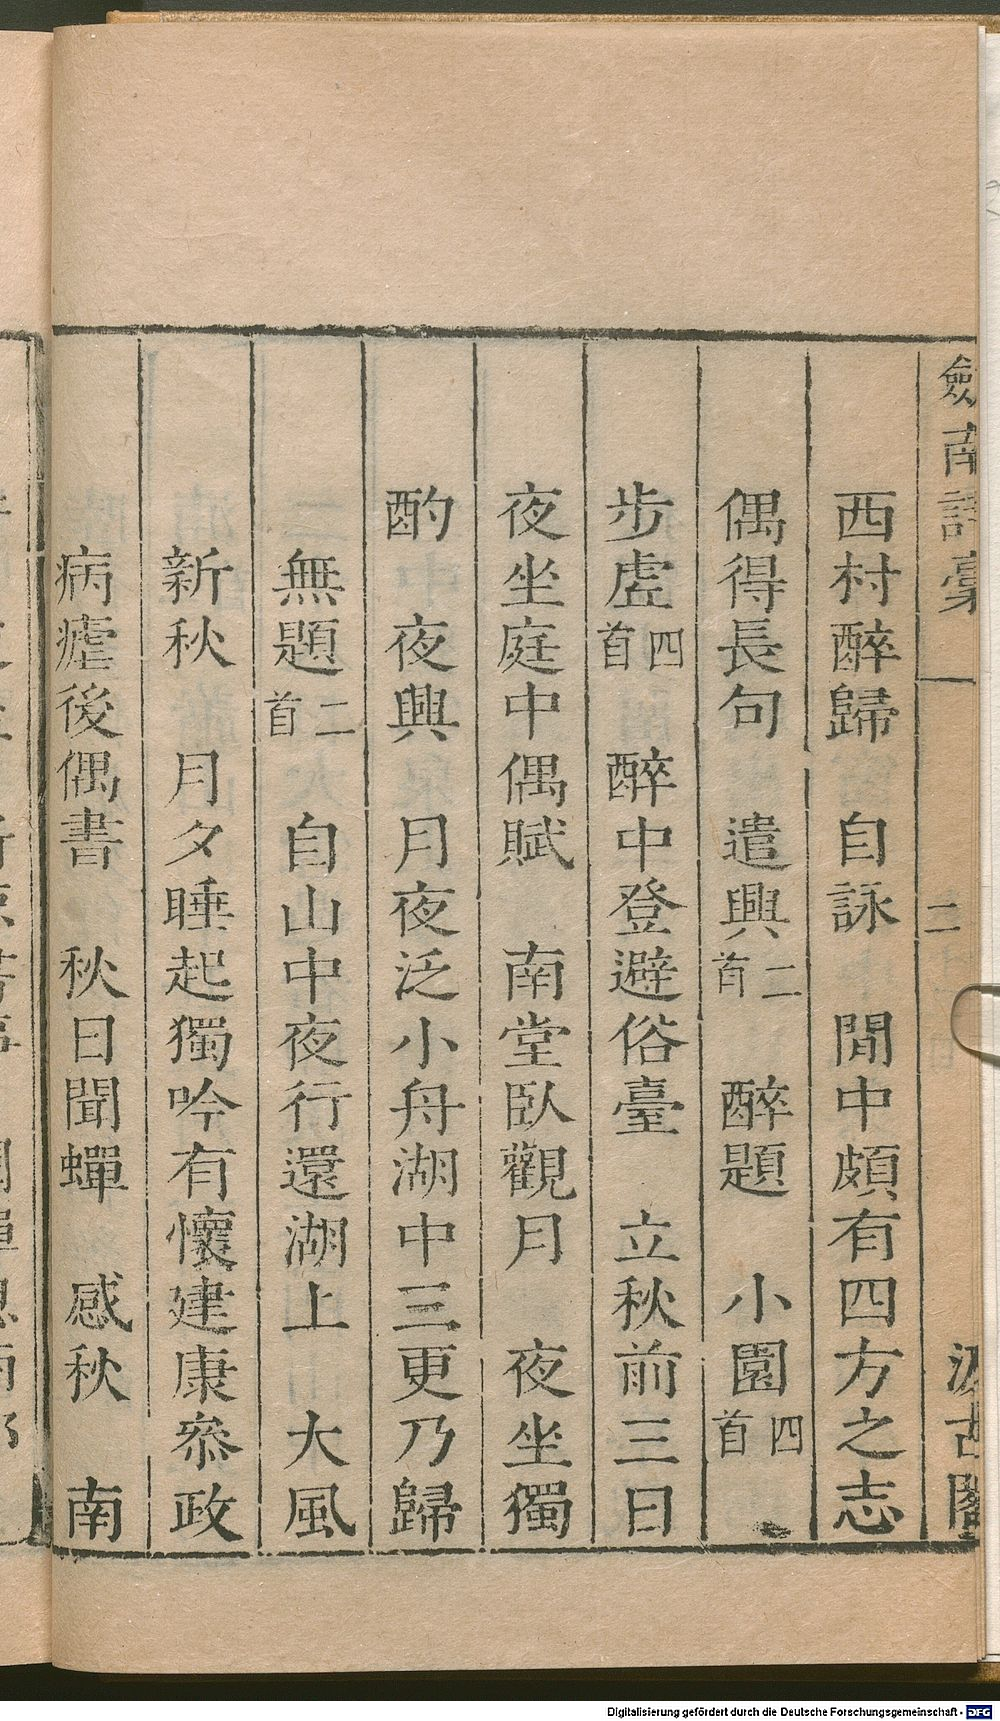 劍南詩稾 二 汲古閣
西村醉歸 自詠 閒中頗有四方之志
偶得長句 遣興二首 醉題 小園四首
步虛四首 醉中登避俗臺 立秋前三日
夜坐庭中偶賦 南堂臥觀月 夜坐獨
酌 夜興 月夜泛小舟湖中三更乃歸
無題二首 自山中夜行還湖上 大風
新秋 月夕睡起獨吟有懷建康叅政
病瘧後偶書 秋日聞蟬 感秋 南
Digitalisierung gefördert durch die Deutsche Forschungsgemeinschaft - DFG